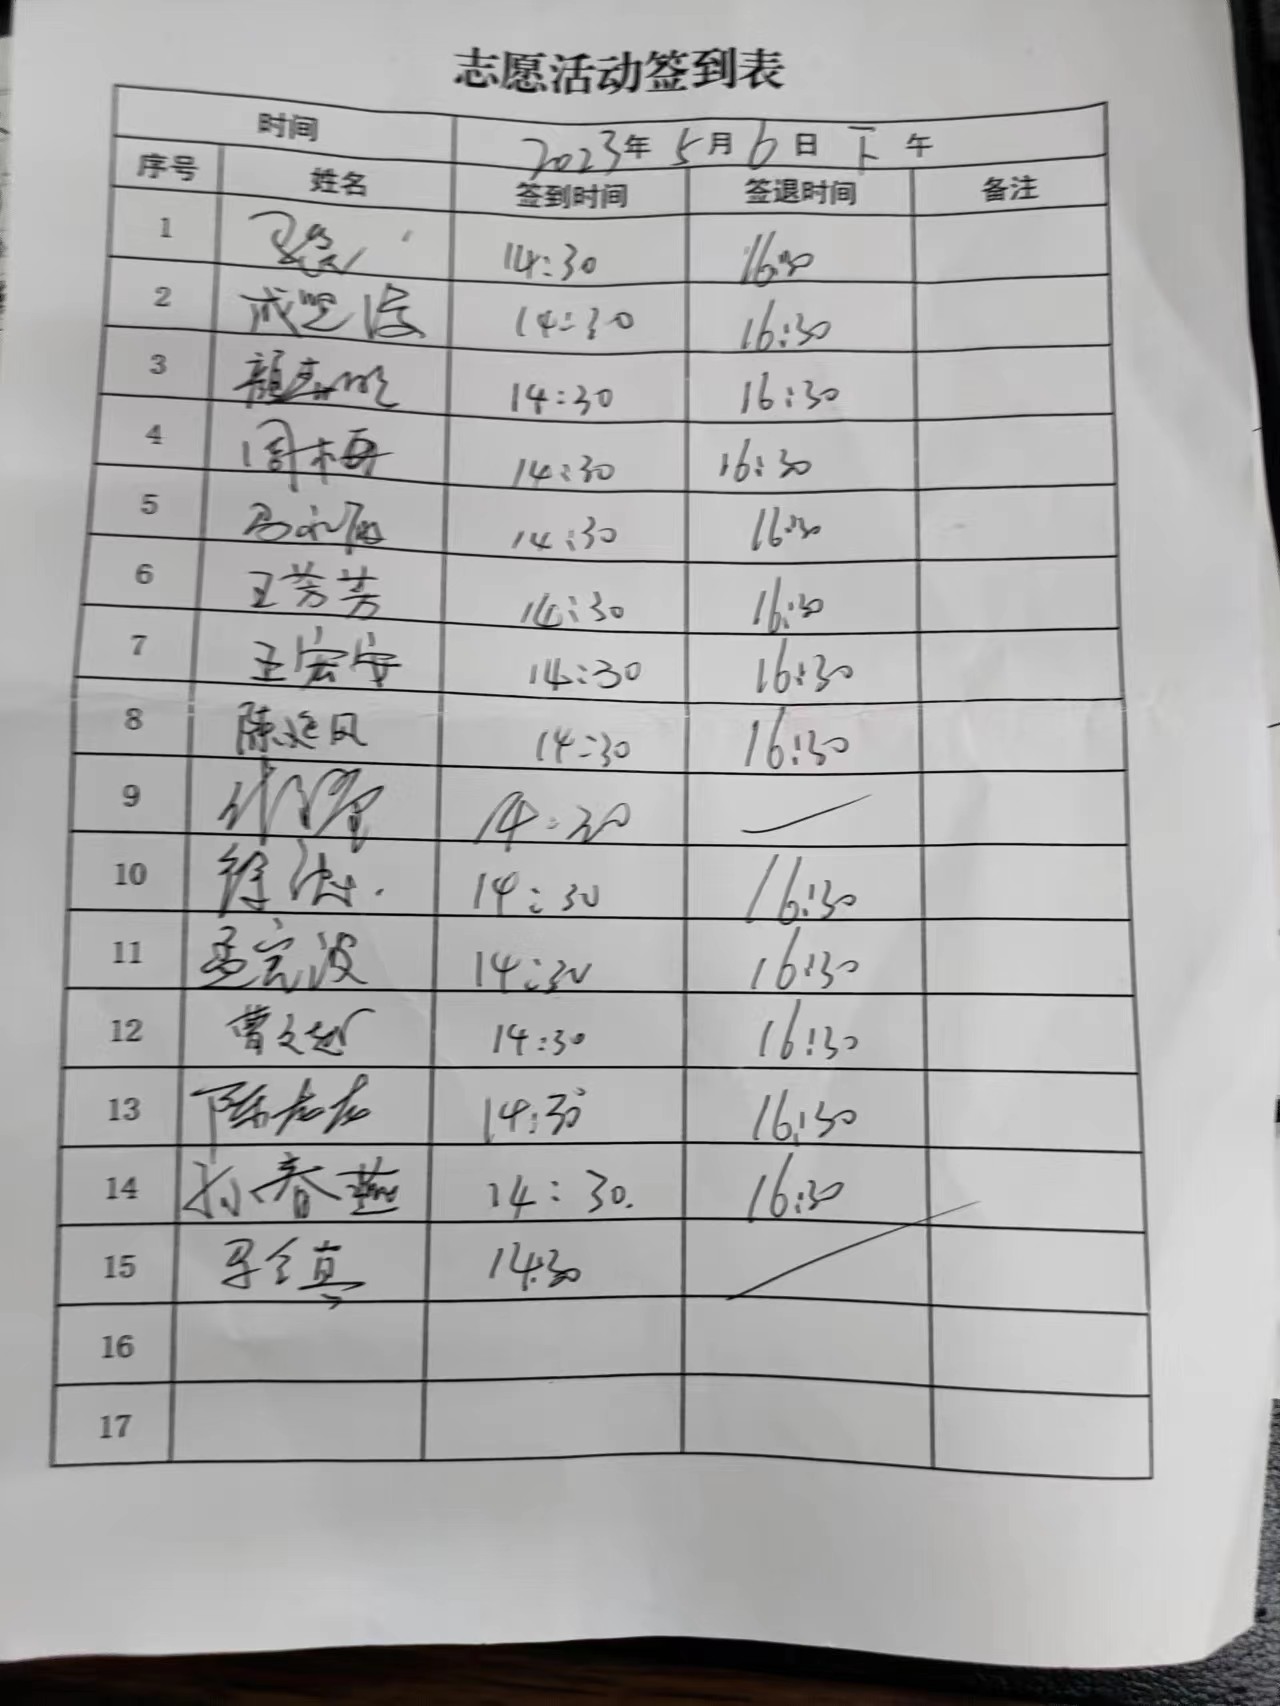 志愿活动签到表
时间 2023年5月6日下午
序号 姓名 签到时间 签退时间 备注
1 14:30 16:30
2 14:30 16:30
3 14:30 16:30
4 周梅 14:30 16:30
5 14:30 16:30
6 王芳芳 14:30 16:30
7 王宏安 14:30 16:30
8 陈延风 14:30 16:30
9 14:30 —
10 徐 14:30 16:30
11 孟宏波 14:30 16:30
12 曹文 14:30 16:30
13 陈 14:30 16:30
14 孙春燕 14:30. 16:30
15 14:30
16
17